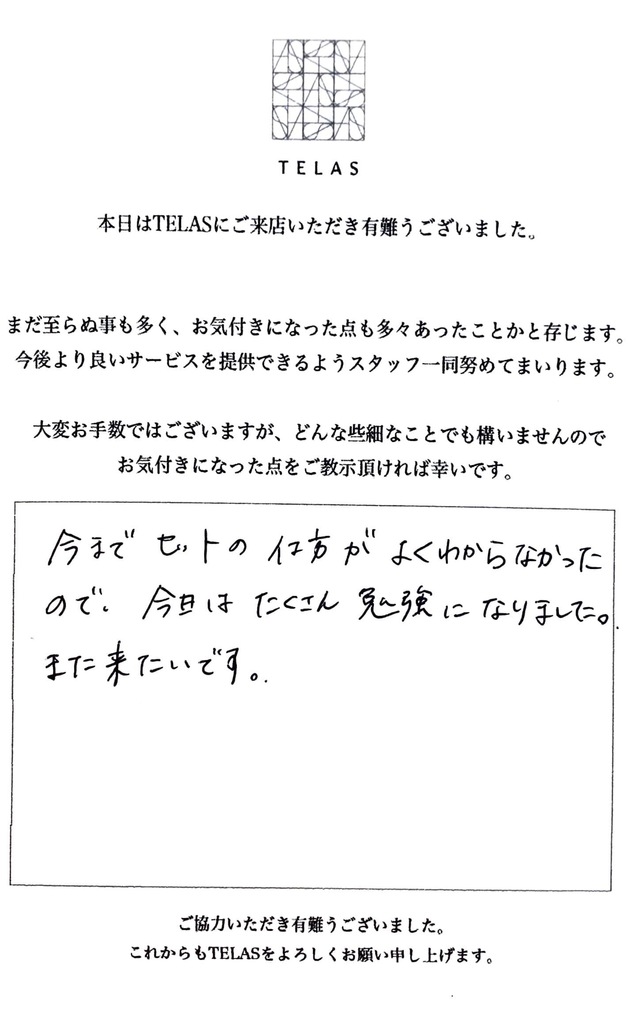 TELAS
本日はTELASにご来店いただき有難うございました。
まだ至らぬ事も多く、お気付きになった点も多々あったことかと存じます。
今後より良いサービスを提供できるようスタッフ一同努めてまいります。
大変お手数ではございますが、どんな些細なことでも構いませんので
お気付きになった点をご教示頂ければ幸いです。
今まで セットの 仕方が よくわからなかった
ので、今日は たくさん 勉強に なりました。
また来たいです。
ご協力いただき有難うございました。
これからもTELASをよろしくお願い申し上げます。